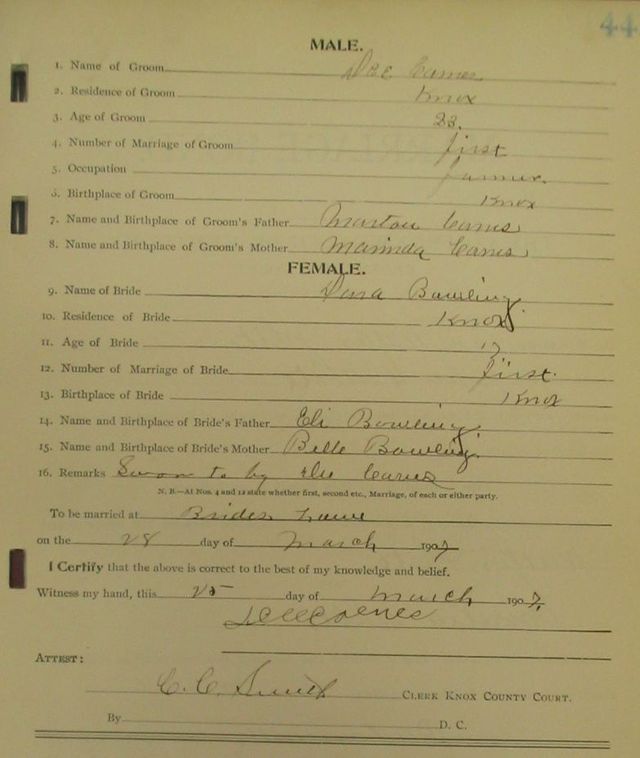 44
MALE.
1. Name of Groom Dee Carnes
2. Residence of Groom Knox
3. Age of Groom 23.
4. Number of Marriage of Groom first
5. Occupation farmer.
6. Birthplace of Groom Knox
7. Name and Birthplace of Groom's Father Carnes
8. Name and Birthplace of Groom's Mother Marinda Carnes
FEMALE.
9. Name of Bride Dora Bowling
10. Residence of Bride Knox
11. Age of Bride 17
12. Number of Marriage of Bride first.
13. Birthplace of Bride Knox
14. Name and Birthplace of Bride's Father Eli Bowling
15. Name and Birthplace of Bride's Mother Belle Bowling.
16. Remarks Sworn to by Dee Carnes
N. B.—At Nos. 4 and 12 state whether first, second etc., Marriage, of each or either party.
To be married at Brides home
on the 28 day of March 1907
I Certify that the above is correct to the best of my knowledge and belief.
Witness my hand, this 25 day of March 1907,
ATTEST:
C. C. Smith CLERK KNOX COUNTY COURT.
By D. C.